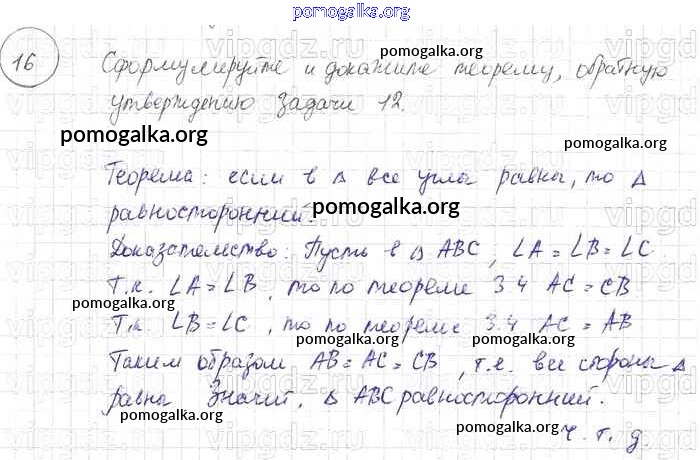 pomogalka.org
16 Сформулируйте и докажите теорему, обратную
утверждению задачи 12.
Теорема: если в △ все углы равны, то △
равносторонний.
Доказательство: Пусть в △ ABC, ∠A = ∠B = ∠C.
Т.к. ∠A = ∠B, то по теореме 3.4 AC = CB
Т.к. ∠B = ∠C, то по теореме 3.4 AC = AB
Таким образом AB = AC = CB, т.е. все стороны △
равны. Значит, △ ABC равносторонний.
ч. т. д.
pomogalka.org
pomogalka.org
pomogalka.org
pomogalka.org
pomogalka.org
pomogalka.org
pomogalka.org
pomogalka.org
pomogalka.org
pomogalka.org